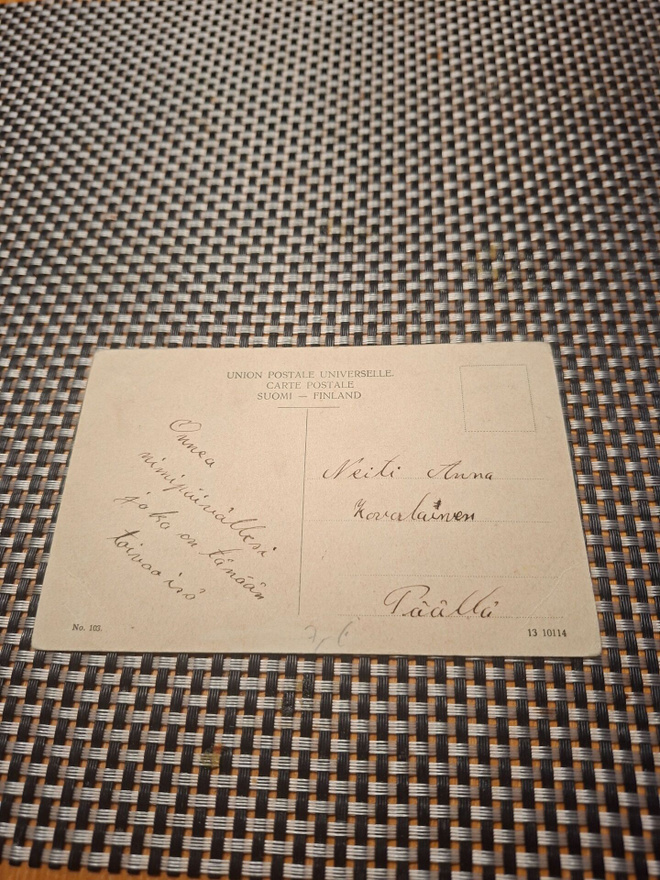 UNION POSTALE UNIVERSELLE.
CARTE POSTALE
SUOMI — FINLAND
Onnea
nimipäivällesi
joka on tänään
toivoo isä
Neiti Anna
Kovalainen
Päällä
No. 103.
13 10114